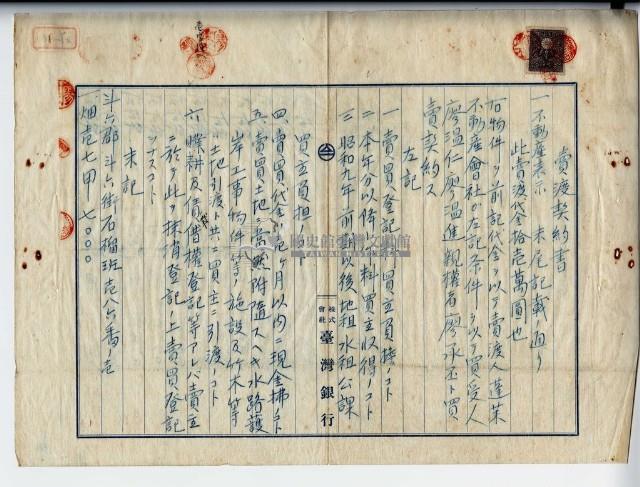 賣渡契約書
一 不動產表示 末尾記載ノ通リ
此賣渡代金拾壱萬圓也
右物件ヲ前記代金ヲ以テ賣渡人蓬萊
不動產會社ガ左記条件ヲ以テ買受人
廖溫仁廖溫進親權者廖承丕ト買
賣契約ス
左記
一 賣買登記ハ買主負擔ノコト
二 本年分以降 料買主收得ノコト
三 昭和九年 前 以後地租水租公課
買主負担ノコト
四 賣買代金ハ 七ヶ月以内ニ現金拂ノコト
五 賣買土地ニ 附隨スベキ水路護
岸工事物件等ノ施設及竹木等
ハ土地引渡ト共ニ買主ニ引渡ノコト
六 業耕及債借權登記等アレバ賣主
ニ於テ此ヲ抹消登記ノ上賣買登記
ヲナスコト
末記
斗六郡斗六街石榴班壱八六番ノ壱
一 畑壱七甲七〇〇〇
株式會社 臺灣銀行
臺灣文獻館
TAIWAN HISTORICA